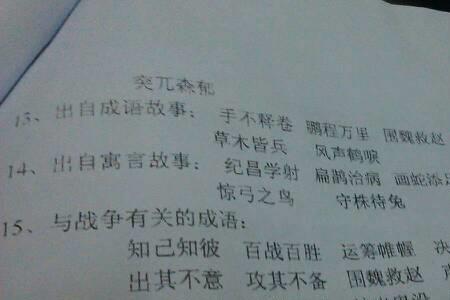 突兀森郁
13、出自成语故事： 手不释卷 鹏程万里 围魏救赵
草木皆兵 风声鹤唳
14、出自寓言故事： 纪昌学射 扁鹊治病 画蛇添足
惊弓之鸟 守株待兔
15、与战争有关的成语：
知己知彼 百战百胜 运筹帷幄 决
出其不意 攻其不备 围魏救赵